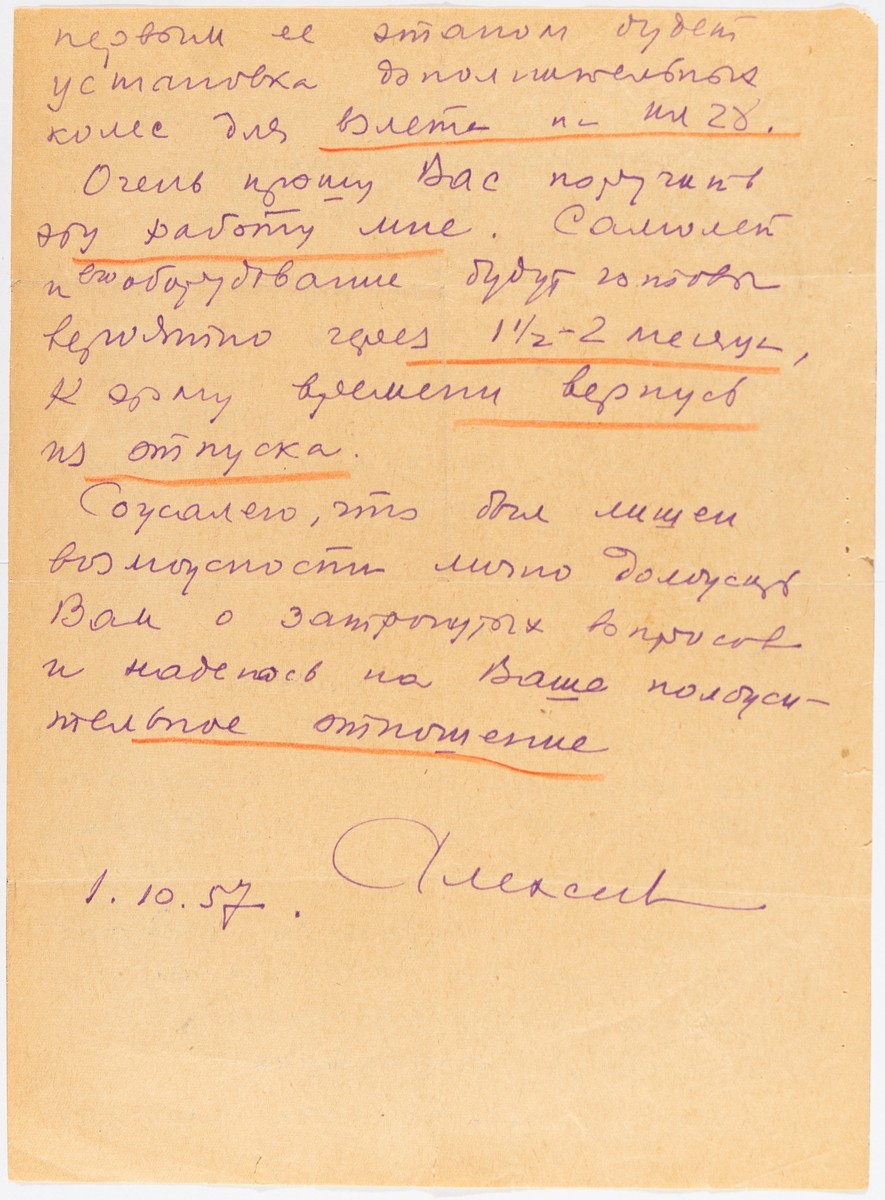 первым ее этапом будет
установка дополнительных
колес для взлета на Ил 28.
Очень прошу Вас поручить
эту работу мне. Самолет
и его оборудование будут готовы
вероятно через 1 1/2-2 месяца,
К этому времени вернусь
из отпуска.
Сожалею, что был лишен
возможности лично доложить
Вам о затронутых вопросов
и надеюсь на Ваше положи-
тельное отношение
1.10.57. Алексеев